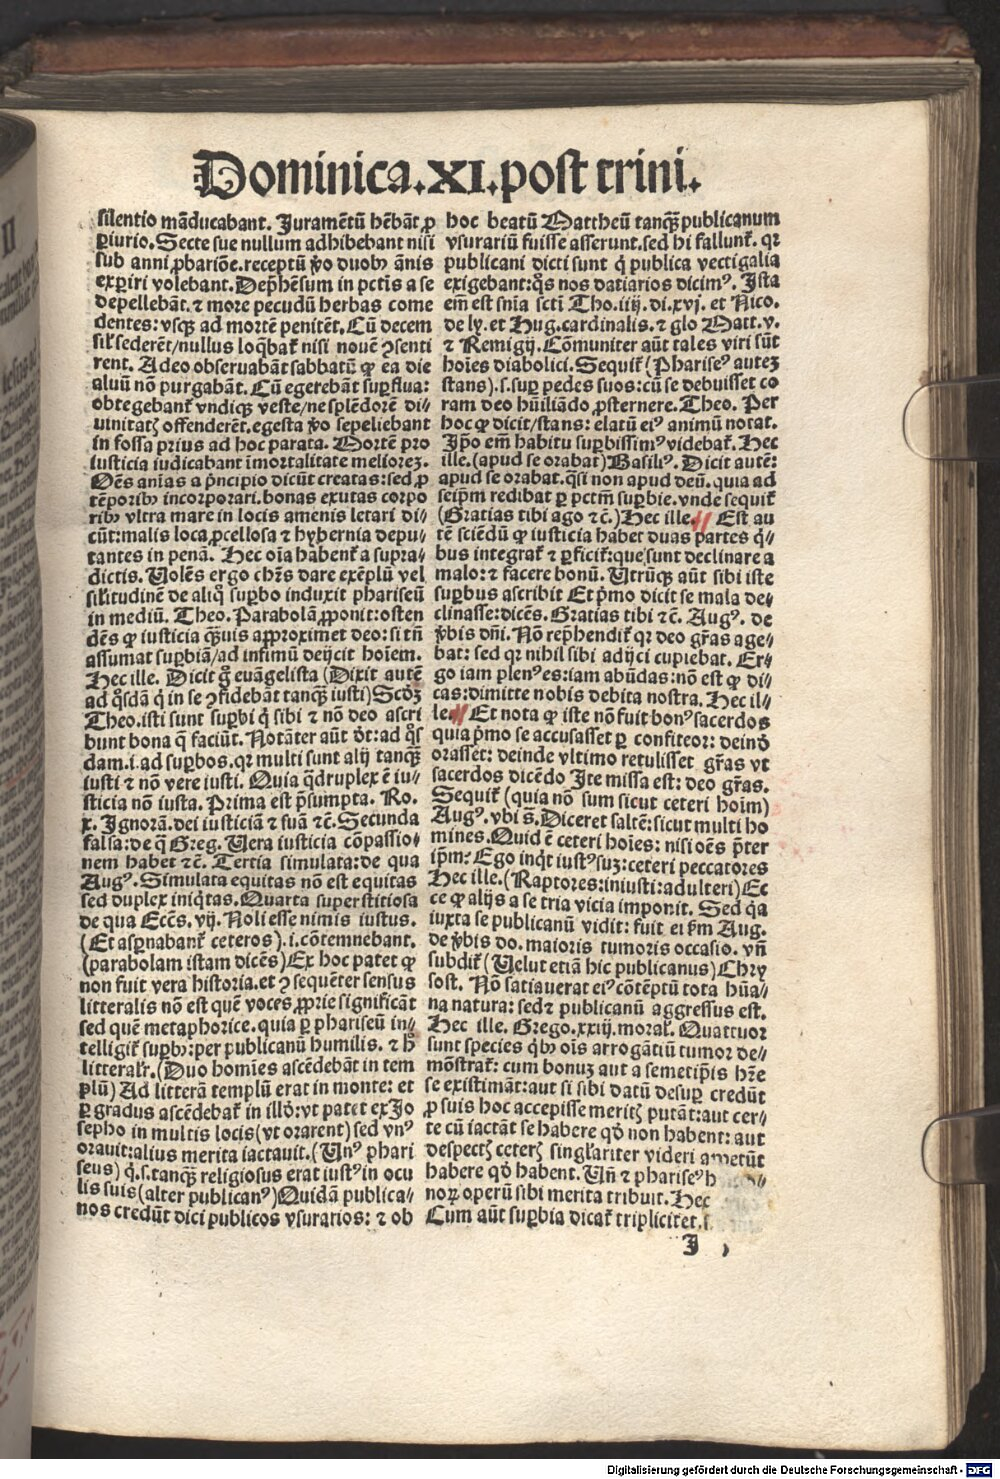 Dominica.XI.post trini.
silentio mãducabant. Iuramẽtũ hẽbãt ꝓ
ꝑiurio. Secte sue nullum adhibebant nisi
sub anni ꝓbariõe. receptũ ꝟo duobꝫ ãnis
exꝑiri volebant. Depꝛhẽsum in pctis a se
depellebãt. ⁊ more pecudũ herbas come
dentes: vsqꝫ ad mortẽ penitẽt. Cũ decem
sil̃ sederẽt/nullus loq̃bat̃ nisi nouẽ ꝯsenti
rent. Adeo obseruabãt sabbatũ ꝙ ea die
aluũ nõ purgabãt. Cũ egerebãt suꝑflua:
obtegebant̃ vndiqꝫ veste/ne splẽdorẽ di⸗
uinitatꝭ offenderẽt. egesta ꝟo sepeliebant
in fossa prius ad hoc parata. Mortẽ pro
iusticia iudicabant ĩmortalitate meliorez.
Oẽs anĩas a pͥncipio dicũt creatas: sed ꝓ
tẽporibꝫ incorporari. bonas exutas corpo
ribꝫ vltra mare in locis amenis letari di⸗
cũt: malis loca ꝓcellosa ⁊ hybernia depu⸗
tantes in penã. Hec oĩa habent̃ a supra⸗
dictis. Volẽs ergo chꝛ̃s dare exẽplũ vel
sil̃itudinẽ de aliqͦ suꝑbo induxit phariseũ
in mediũ. Theo. Parabolã ꝓponit: osten
dẽs ꝙ iusticia qͣ̃uis aꝓproximet deo: si tñ
assumat suꝑbiã/ad infimũ deijcit hoĩem.
Hec ille. Dicit gͦ euãgelista (Dixit autẽ
ad qͦsdã q̃ in se ꝯfidebãt tanqͣ̃ iusti) Scďꝫ
Theo. isti sunt suꝑbi q̃ sibi ⁊ nõ deo ascri
bunt bona q̃ faciũt. Notãter aũt ďt: ad qͦs
dam. i. ad suꝑbos. qꝛ multi sunt alij tanqͣ̃
iusti ⁊ nõ vere iusti. Quia q̃druplex ẽ iu⸗
sticia nõ iusta. Prima est pͥsumpta. Ro.
x. Ignorã. dei iusticiã ⁊ suã ⁊c̃. Secunda
falsa: de q̃ Greg. Uera iusticia cõpassio⸗
nem habet ⁊c̃. Tertia simulata: de qua
Augꝰ. Simulata equitas nõ est equitas
sed duplex iniqͥtas. Quarta superstitiosa
de qua Eccẽs. vij. Noli esse nimis iustus.
(Et asꝑnabant̃ ceteros). i. cõtemnebant.
(parabolam istam dicẽs) Ex hoc patet ꝙ
non fuit vera historia. et ꝯsequẽter sensus
litteralis nõ est quẽ voces ꝓprie significãt
sed quẽ metaphorice. quia ꝑ phariseũ in⸗
telligit̃ suꝑbꝰ: per publicanũ humilis. ⁊ h̃
litteralr̃. (Duo homĩes ascẽdebãt in tem
plũ) Ad litterã templũ erat in monte: et
ꝑ gradus ascẽdebat̃ in illď: vt patet ex Jo
sepho in multis locis (vt orarent) sed vnꝰ
orauit: alius merita iactauit. (Unꝰ phari
seus) q̃. s. tanqͣ̃ religiosus erat iustꝰ in ocu
lis suis (alter publicanꝰ) Quidã publica⸗
nos credũt dici publicos vsurarios: ⁊ ob
hoc beatũ Mattheũ tanqͣ̃ publicanum
vsurariũ fuisse asserunt. sed hi fallunt̃. qꝛ
publicani dicti sunt q̃ publica vectigalia
exigebant: qͦs nos datiarios dicimꝰ. Ista
em̃ est snĩa scti Tho. iiij. di. xvj. et Nico.
de ly. et Hug. cardinalis. ⁊ glo Matt. v.
⁊ Remigij. Cõmuniter aũt tales viri sũt
hoĩes diabolici. Sequit̃ (Phariseꝰ autez
stans). s. suꝑ pedes suos: cũ se debuisset co
ram deo hũiliãdo ꝓsternere. Theo. Per
hoc ꝙ dicit/stans: elatũ eiꝰ animũ notat.
Ipͦo em̃ habitu suꝑbissimꝰ videbat̃. Hec
ille. (apud se orabat) Basilꝰ. Dicit autẽ:
apud se orabat. qͣsi non apud deũ. quia ad
seipͫm redibat ꝑ pctm̃ suꝑbie. vnde sequit̃
(Gratias tibi ago ⁊c̃.) Hec ille. Est au
tẽ sciẽdũ ꝙ iusticia habet duas partes q̃⸗
bus integrat̃ ⁊ ꝑficit̃: que sunt declinare a
malo: ⁊ facere bonũ. Utrũqꝫ aũt sibi iste
suꝑbus ascribit Et pͥmo dicit se mala de⸗
clinasse: dicẽs. Gratias tibi ⁊c̃. Augꝰ. de
ꝟbis dñi. Nõ repꝛhendit̃ qꝛ deo gr̃as age⸗
bat: sed qꝛ nihil sibi adijci cupiebat. Er⸗
go iam plenꝰ es: iam abũdas: nõ est ꝙ di⸗
cas: dimitte nobis debita nostra. Hec il⸗
le. Et nota ꝙ iste nõ fuit bonꝰ sacerdos
quia pͥmo se accusasset ꝑ confiteor: deinď
orasset: deinde vltimo retulisset gr̃as vt
sacerdos dicẽdo Ite missa est: deo gr̃as.
Sequit̃ (quia nõ sum sicut ceteri hoĩm)
Augꝰ. vbi s̃. Diceret saltẽ: sicut multi ho
mines. Quid ẽ ceteri hoĩes: nisi oẽs pͥter
ipͫm: Ego inqͥt iustꝰ suꝫ: ceteri peccatores
Hec ille. (Raptores: iniusti: adulteri) Ec
ce ꝙ alijs a se tria vicia imponit. Sed qͥa
iuxta se publicanũ vidit: fuit ei ẜm Aug.
de ꝟbis do. maioris tumoris occasio. vñ
subdit̃ (Uelut etiã hic publicanus) Chry
sost. Nõ satiauerat eiꝰ cõtẽptũ tota hũa⸗
na natura: sedꝫ publicanũ aggressus est.
Hec ille. Grego. xxiij. moral̃. Quattuor
sunt species qͥbꝫ oĩs arrogãtiũ tumor de⸗
mõstrat̃: cum bonuꝫ aut a semetipͥis hr̃e
se existimãt: aut si sibi datũ desuꝑ credũt
ꝓ suis hoc accepisse meritꝭ putãt: aut cer⸗
te cũ iactãt se habere qď non habent: aut
despectꝭ ceterꝭ singl̃ariter videri appetũt
habere qď habent. Uñ ⁊ phariseꝰ
noꝝ operũ sibi merita tribuit. Hec
Cum aũt suꝑbia dicat̃ tripliciter.
I
Digitalisierung gefördert durch die Deutsche Forschungsgemeinschaft - DFG